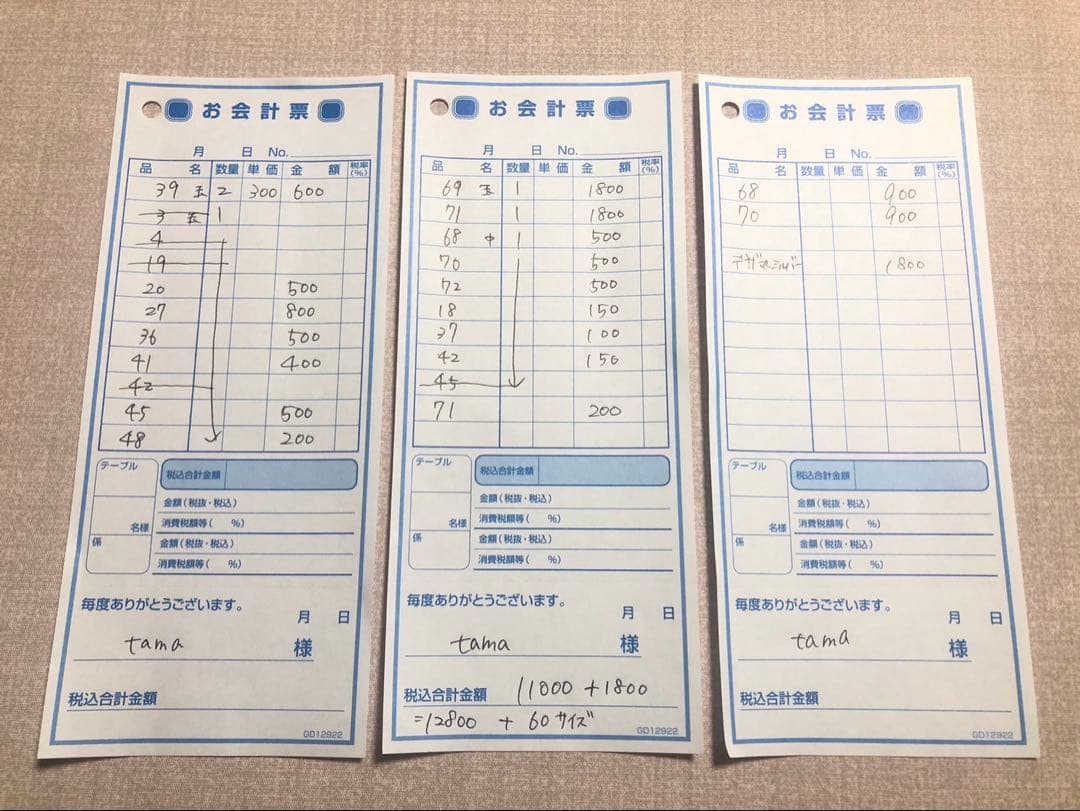 お会計票
月 日 No.
品 名 数量 単価 金 額 税率(%)
39 玉 2 300 600
3 玉 1
4
19
20 500
27 800
36 500
41 400
42
45 500
48 200
テーブル 税込合計金額
金額(税抜・税込)
名様 消費税額等( %)
係 金額(税抜・税込)
消費税額等( %)
毎度ありがとうございます。
月 日
tama 様
税込合計金額
GD12922
お会計票
月 日 No.
品 名 数量 単価 金 額 税率(%)
69 玉 1 1800
71 1 1800
68 中 1 500
70 500
72 500
18 150
37 100
42 150
45
71 200
テーブル 税込合計金額
金額(税抜・税込)
名様 消費税額等( %)
係 金額(税抜・税込)
消費税額等( %)
毎度ありがとうございます。
月 日
tama 様
税込合計金額 11000 + 1800
=12800 + 60サイズ
GD12922
お会計票
月 日 No.
品 名 数量 単価 金 額 税率(%)
68 900
70 900
1800
テーブル 税込合計金額
金額(税抜・税込)
名様 消費税額等( %)
係 金額(税抜・税込)
消費税額等( %)
毎度ありがとうございます。
月 日
tama 様
税込合計金額
GD12922